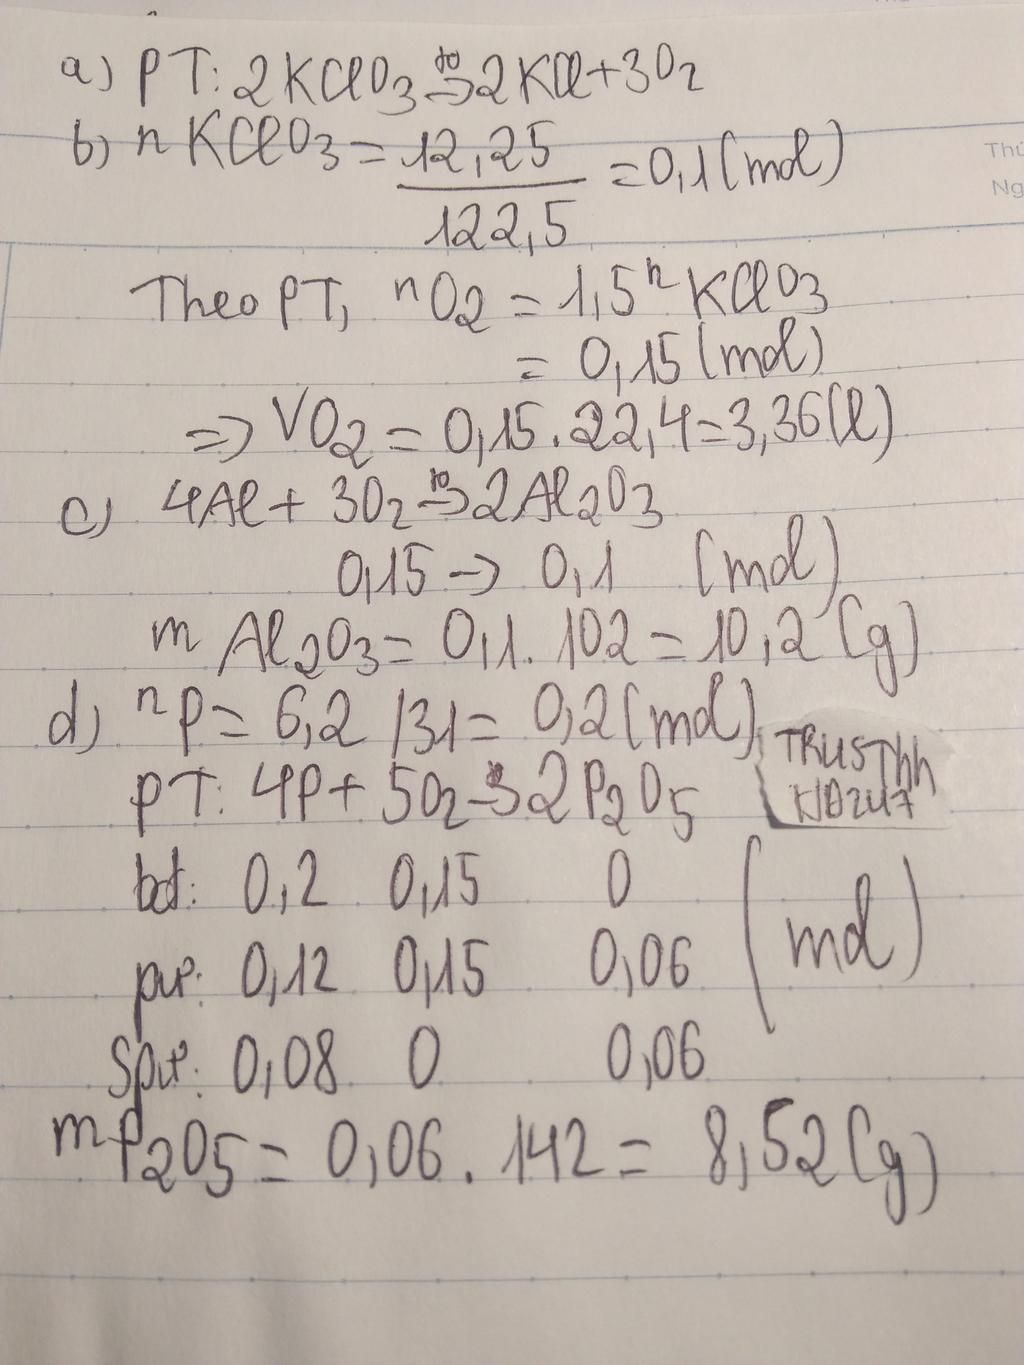 a) PT: 2KClO3 to→ 2KCl+3O2
b) nKClO3 = 12,25/122,5 = 0,1 (mol)
Theo PT, nO2 = 1,5nKClO3
= 0,15 (mol)
=> VO2 = 0,15.22,4=3,36(l)
c) 4Al + 3O2 to→ 2Al2O3
0,15 → 0,1 (mol)
mAl2O3 = 0,1.102 = 10,2 (g)
d) nP = 6,2 /31 = 0,2 (mol)
PT: 4P + 5O2 to→ 2P2O5
bđ: 0,2 0,15 0
pư: 0,12 0,15 0,06 (mol)
Spư: 0,08 0 0,06
mP2O5 = 0,06 . 142 = 8,52 (g)
Thứ
Ng